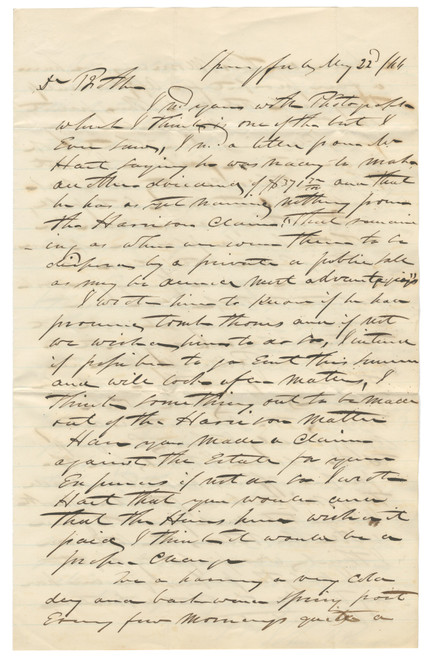 Springfield Ky May 22d /66
Dr Brother
I recd yours with Photograph
which I think is one of the best I
Ever saw, I recd a letter from Mr
Hart saying he was ready to make
another dividend of $371 and that
he has as yet received nothing from
the Harrison Claim. "That remain
ing as when we were there to be
disposed by a private or public sale
as may be deemed most advantageous"
I wrote him to know if he had
procured tomb stones and if not
we wished him to do so, I intend
if possible to go East this summer
and will look after matters, I
think something out to be made
out of the Harrison matter
Have you made a claim
against the Estate for your
Expenses if not do so I wrote
Hart that you would and
that the Heirs here wished it
paid, I think it would be a
proper charge
We are having a very cold
day and backward Spring frost
Every few mornings quite a